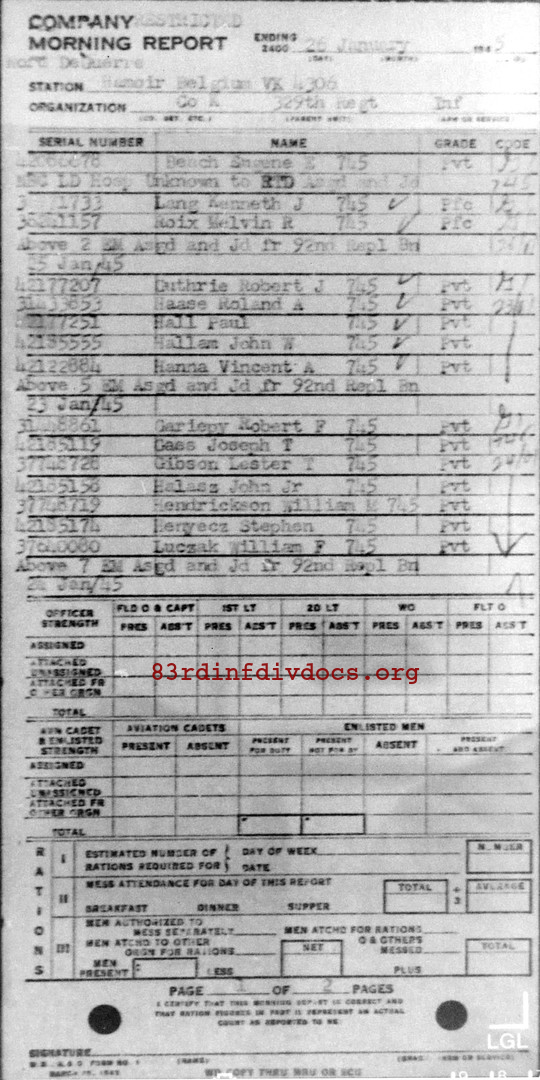 COMPANY RESTRICTED
MORNING REPORT ENDING 2400 26 January 1945
STATION Hamoir Belgium VK 4306
ORGANIZATION Co K 329th Regt Inf
SERIAL NUMBER NAME GRADE CODE
Beach Eugene E 745 Pvt
Hosp Unknown to RTD Asgd and Jd
Lang Kenneth J 745 Pfc
Roix Melvin R 745 Pfc
Above 2 EM Asgd and Jd fr 92nd Repl Bn
25 Jan/45
42177207 Duthrie Robert J 745 Pvt
31433853 Haase Roland A 745 Pvt
42177251 Hall Paul 745 Pvt
42185555 Hallam John W 745 Pvt
42122884 Hanna Vincent A 745 Pvt
Above 5 EM Asgd and Jd fr 92nd Repl Bn
23 Jan/45
31448861 Gariepy Robert F 745 Pvt
42185119 Gass Joseph T 745 Pvt
37748728 Gibson Lester T 745 Pvt
42185158 Halasz John Jr 745 Pvt
37748719 Hendrickson William M 745 Pvt
42185174 Henyecz Stephen 745 Pvt
37640080 Luczak William F 745 Pvt
Above 7 EM Asgd and Jd fr 92nd Repl Bn
24 Jan/45
OFFICER STRENGTH FLD O & CAPT 1ST LT 2D LT WO FLT O
PRES ABS'T PRES ABS'T PRES ABS'T PRES ABS'T PRES ABS'T
ASSIGNED
ATTACHED UNASSIGNED
83rdinfdivdocs.org
ATTACHED FR OTHER ORGN
TOTAL
AVN CADET & ENLISTED STRENGTH AVIATION CADETS ENLISTED MEN
PRESENT ABSENT PRESENT FOR DUTY PRESENT NOT FOR DY ABSENT PRESENT AND ABSENT
ASSIGNED
ATTACHED UNASSIGNED
ATTACHED FR OTHER ORGN
TOTAL
RATIONS
I ESTIMATED NUMBER OF RATIONS REQUIRED FOR DAY OF WEEK DATE NUMBER
II MESS ATTENDANCE FOR DAY OF THIS REPORT TOTAL ÷ 3 AVERAGE
BREAKFAST DINNER SUPPER
III MEN AUTHORIZED TO MESS SEPARATELY MEN ATCHD FOR RATIONS
MEN ATCHD TO OTHER ORGN FOR RATIONS NET & OTHERS MESSED TOTAL
MEN PRESENT LESS PLUS
PAGE 1 OF 2 PAGES
I CERTIFY THAT THIS MORNING REPORT IS CORRECT AND
THAT RATION FIGURES IN PART III REPRESENT AN ACTUAL
COUNT AS REPORTED TO ME
LGL
SIGNATURE
W.D., A.G.O. FORM NO. 1 (NAME)